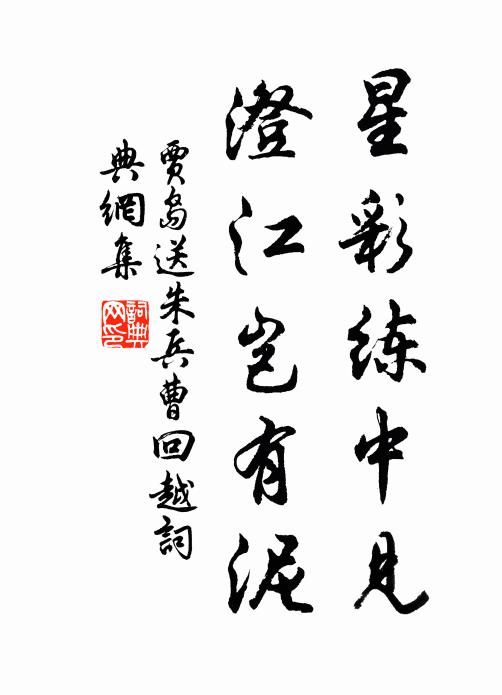 星彩练中見
澄江岂有泥
賈島送朱兵曹回越詞
典網集
詞典
网印